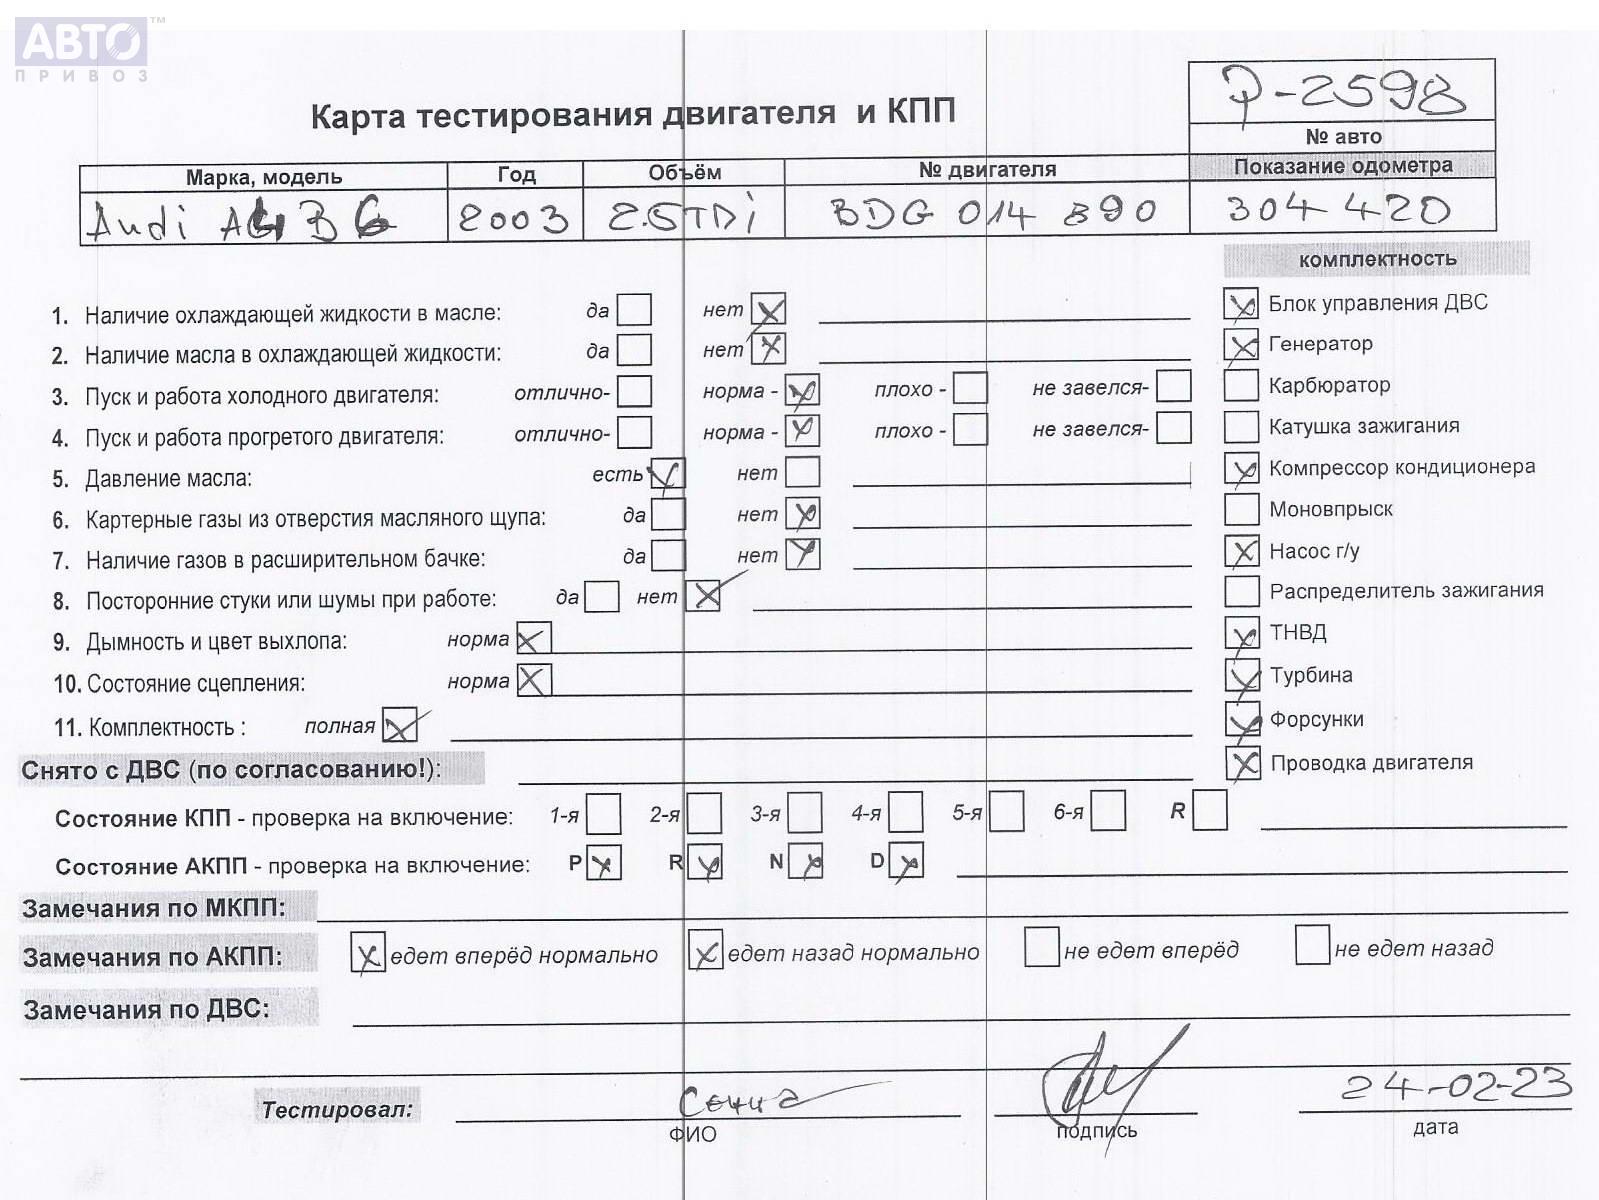 АВТО™
ПРИВОЗ
Карта тестирования двигателя и КПП
P-2598
№ авто
Марка, модель Год Объём № двигателя Показание одометра
Audi A4 B6 2003 2.5TDi BDG 014 890 304 420
комплектность
1. Наличие охлаждающей жидкости в масле: да нет
Блок управления ДВС
2. Наличие масла в охлаждающей жидкости: да нет
Генератор
3. Пуск и работа холодного двигателя: отлично- норма - плохо - не завелся-
Карбюратор
4. Пуск и работа прогретого двигателя: отлично- норма - плохо - не завелся-
Катушка зажигания
5. Давление масла: есть нет
Компрессор кондиционера
6. Картерные газы из отверстия масляного щупа: да нет
Моновпрыск
7. Наличие газов в расширительном бачке: да нет
Насос г/у
8. Посторонние стуки или шумы при работе: да нет
Распределитель зажигания
9. Дымность и цвет выхлопа: норма
ТНВД
10. Состояние сцепления: норма
Турбина
11. Комплектность : полная
Форсунки
Снято с ДВС (по согласованию!):
Проводка двигателя
Состояние КПП - проверка на включение: 1-я 2-я 3-я 4-я 5-я 6-я R
Состояние АКПП - проверка на включение: P R N D
Замечания по МКПП:
Замечания по АКПП: едет вперёд нормально едет назад нормально не едет вперёд не едет назад
Замечания по ДВС:
Тестировал: 24-02-23
ФИО подпись дата